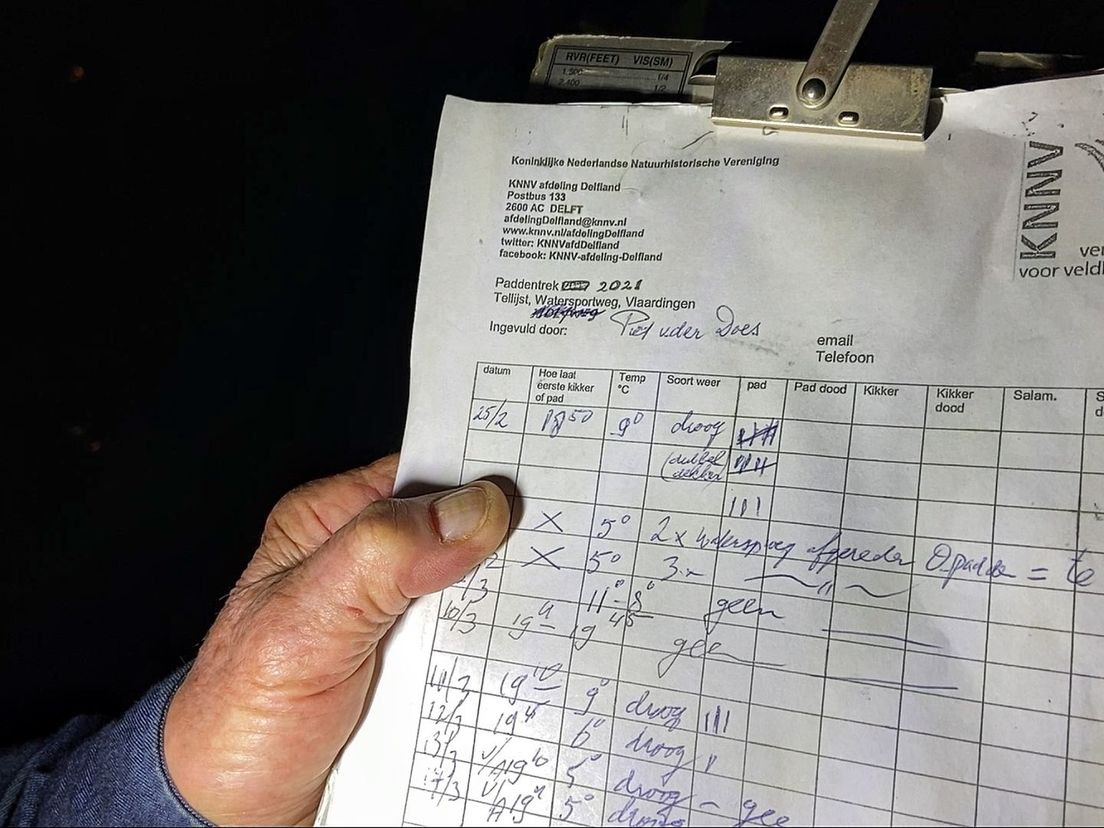 RVR(FEET) VIS(SM)
1,500 1/4
2,400 1/2
Koninklijke Nederlandse Natuurhistorische Vereniging
KNNV
KNNV afdeling Delfland
Postbus 133
2600 AC DELFT
afdelingDelfland@knnv.nl
www.knnv.nl/afdelingDelfland
twitter: KNNVafdDelfland
facebook: KNNV-afdeling-Delfland
voor veld
Paddentrek 2021
Tellijst, Watersportweg, Vlaardingen
Ingevuld door: Piet v der Does
email
Telefoon
datum Hoe laat eerste kikker of pad Temp °C Soort weer pad Pad dood Kikker Kikker dood Salam.
25/2 18 50 9° droog
(dubbel
dekker)
X 5° 2 x watersp weg afgereden 0 padde = te
X 5° 3x
11°-8° geen
10/3 19 - 19 45 geen
11/3 19 10 9° droog III
12/3 19 6° droog
13/3 19 5° droog - gee
5°